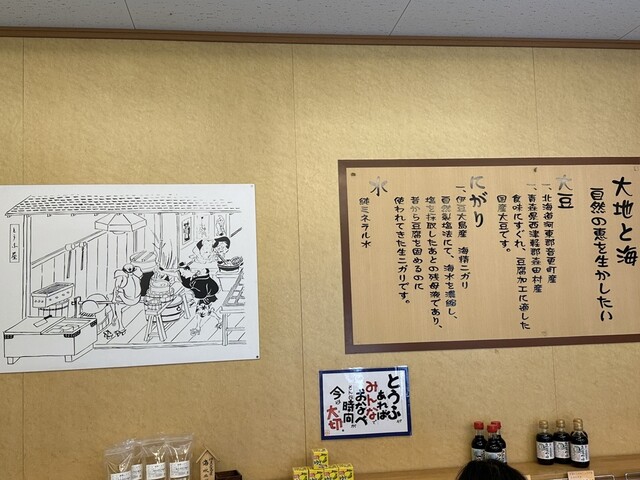 大地と海
自然の恵を生かしたい
大豆
一、北海道河東郡音更町産
一、青森県西津軽郡森田村産
食味にすぐれ、豆腐加工に適した
国産大豆です。
にがり
一、伊豆大島産 海精ニガリ
自然製塩法にて、海水を濃縮し、
塩を採取したあとの残母液であり、
昔から豆腐を固めるのに
使われてきた生ニガリです。
水
ミネラル水
とうふ
あれば
みんなで
おなべ
こんな時間が
今は
大切。